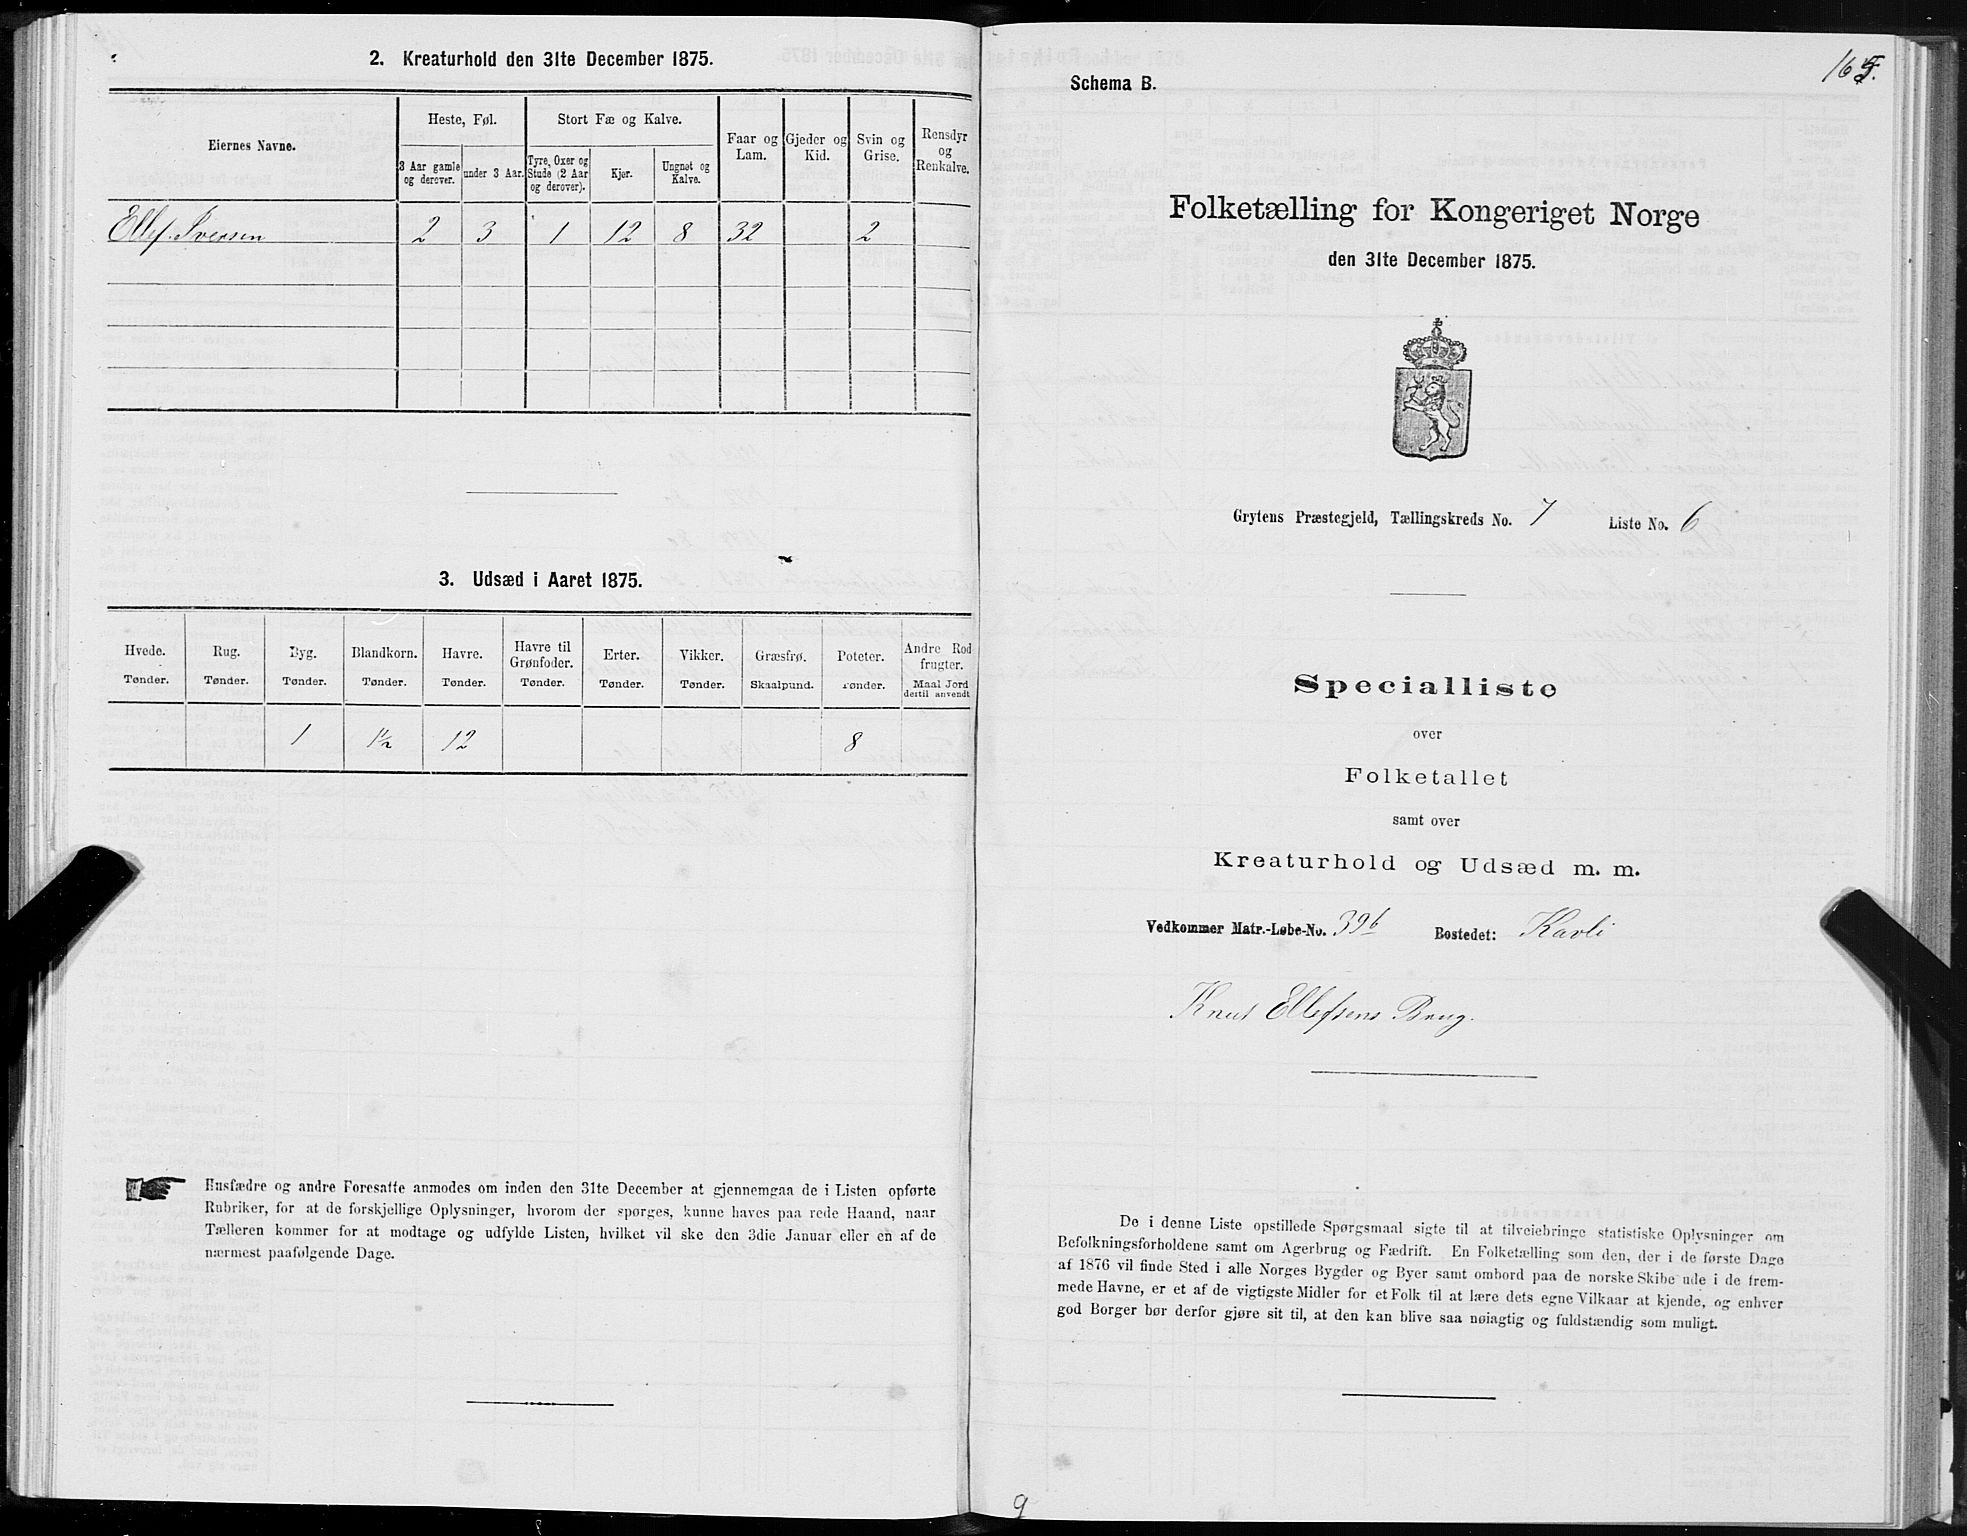 2. Kreaturhold den 31te December 1875.
Eiernes Navne.
Heste, Føl.
Stort Fæ og Kalve.
Faar og Lam.
Gjeder og Kid.
Svin og Grise.
Rensdyr og Renkalve.
3 Aar gamle og derover.
under 3 Aar.
Tyre, Oxer og Stude (2 Aar og derover).
Kjør.
Ungnøt og Kalve.
Ellef Iversen 2 3 1 12 8 32 2
3. Udsæd i Aaret 1875.
Hvede. Rug. Byg. Blandkorn. Havre. Havre til Grønfoder. Erter. Vikker. Græsfrø. Poteter. Andre Rodfrugter.
Tønder. Tønder. Tønder. Tønder. Tønder. Tønder. Tønder. Tønder. Skaalpund. Tønder. Maal Jord dertil anvendt
1 1½ 12 8
Husfædre og andre Foresatte anmodes om inden den 31te December at gjennemgaa de i Listen opførte
Rubriker, for at de forskjellige Oplysninger, hvorom der spørges, kunne haves paa rede Haand, naar
Tælleren kommer for at modtage og udfylde Listen, hvilket vil ske den 3die Januar eller en af de
nærmest paafølgende Dage.
Schema B.
Folketælling for Kongeriget Norge
den 31te December 1875.
Grytens Præstegjeld, Tællingskreds No. 7 Liste No. 6
Specialliste
over
Folketallet
samt over
Kreaturhold og Udsæd m. m.
Vedkommer Matr.-Løbe-No. 39b Bostedet: Kavli
Knut Ellefsens Brug.
De i denne Liste opstillede Spørgsmaal sigte til at tilveiebringe statistiske Oplysninger om
Befolkningsforholdene samt om Agerbrug og Fædrift. En Folketælling som den, der i de første Dage
af 1876 vil finde Sted i alle Norges Bygder og Byer samt ombord paa de norske Skibe ude i de frem-
mede Havne, er et af de vigtigste Midler for et Folk til at lære dets egne Vilkaar at kjende, og enhver
god Borger bør derfor gjøre sit til, at den kan blive saa nøiagtig og fuldstændig som muligt.
9